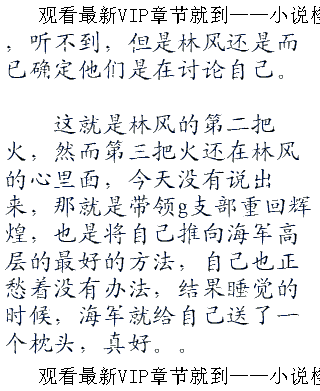 观看最新VIP章节就到——小说
，听不到，但是林风还是而
已确定他们是在讨论自己。
这就是林风的第二把
火，然而第三把火还在林风
的心里面，今天没有说出
来，那就是带领g支部重回辉
煌，也是将自己推向海军高
层的最好的方法，自己也正
愁着没有办法，结果睡觉的
时候，海军就给自己送了一
个枕头，真好。。
观看最新VIP章节就到——小说